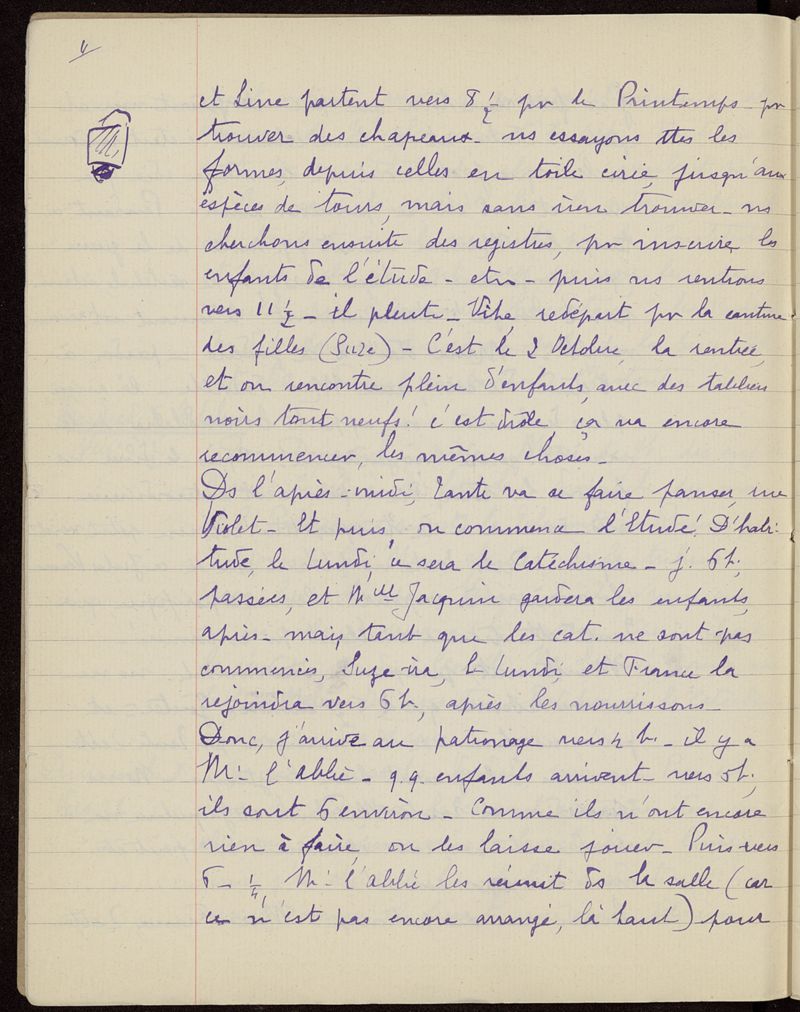 4
et Line partent vers 8 ½ pr le Printemps - pr
trouver des chapeaux - ns essayons ttes les
formes, depuis celles en toile cirée, jusqu'aux
espèces de tours, mais sans rien trouver - ns
cherchons ensuite des registres, pr inscrire les
enfants de l'étude - etc - puis ns rentrons
vers 11 ½ - il pleut - Vite, redépart pr la cantine
des filles (Suze) - C'est le 2 Octobre, la rentrée,
et on rencontre plein d'enfants, avec des tabliers
noirs tout neufs! c'est drôle, ça va encore
recommencer, les mêmes choses -
Ds l'après-midi, Tante va se faire panser, rue
Violet - Et puis, on commence l'Etude! D'habi-
tude, le Lundi, ce sera le Catéchisme - j. 6 h.
passées, et Mlle Jacquin gardera les enfants,
après - mais, tant que les cat. ne sont pas
commencés, Suze ira, le Lundi et France la
rejoindra vers 6 h., après les nourrissons -
Donc, j'arrive au patronage vers 4 h. - il y a
Mr l'abbé - q.q. enfants arrivent - vers 5 h.,
ils sont 6 environ - Comme ils n'ont encore
rien à faire, on les laisse jouer - Puis vers
6 - ¼, Mr l'abbé les réunit ds la salle (car
ce n'est pas encore arrangé, là haut) pour